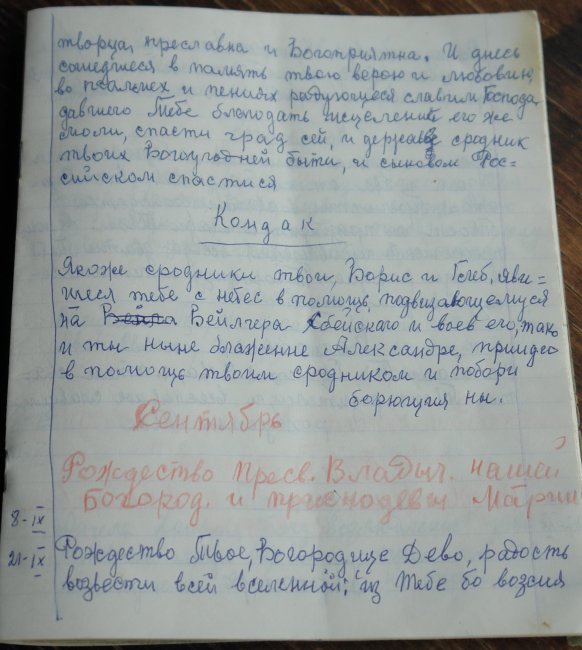 творца, преславна и Богоприятна. И днесь
сошедшеся в память твою верою и любовию,
во псалмех и пениях радующеся славим Господа,
давшего Тебе благодать исцелений его же
моли, спасти град сей, и державе сродник
твоих Богоугодней быти, и сыновом Рос=
сийском спастися
Кондак
Якоже сродники твои, Борис и Глеб, яви=
шеся тебе с небес в помощь, подвизающемуся
на Вейлгера Свейскаго и воев его, тако
и ты ныне блаженне Александре, прииди
в помощь твоим сродником и побори
борющия ны.
Сентябрь
Рождество Пресв. Владыч. нашей
Богород. и приснодевы Марии
8-IX
21-IX Рождество Твое, Богородице Дево, радость
возвести всей вселенной; из Тебе бо возсия